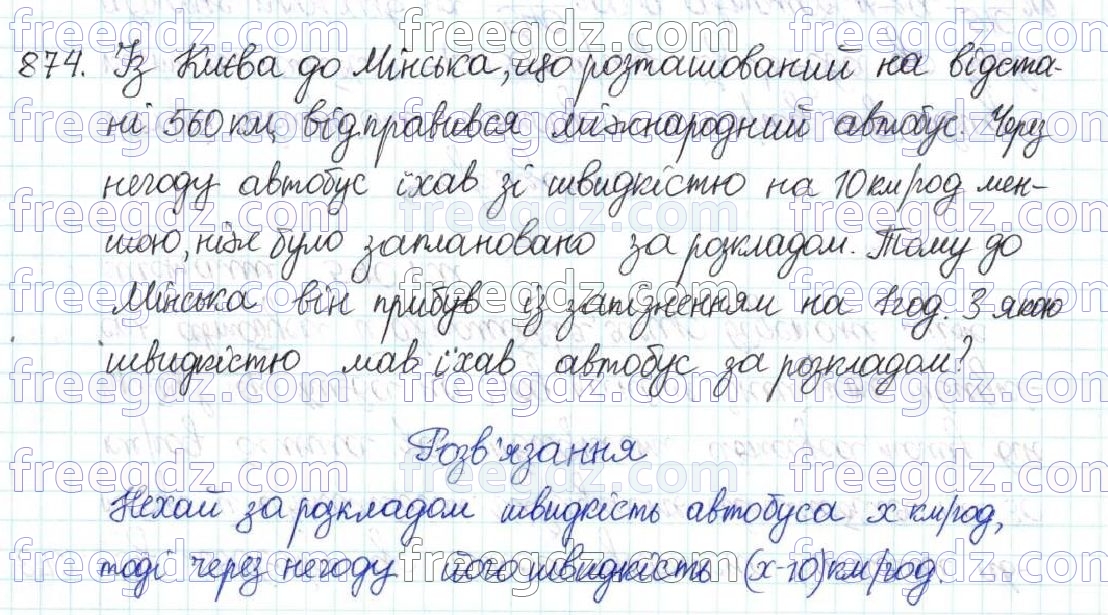 874. Із Києва до Мінська, що розташований на відста-
ні 560 км, відправився міжнародний автобус. Через
негоду автобус їхав зі швидкістю на 10 км/год мен-
шою, ніж було заплановано за розкладом. Тому до
Мінська він прибув із запізненням на 1 год. З якою
швидкістю мав їхав автобус за розкладом?
Розв'язання
Нехай за розкладом швидкість автобуса x км/год,
тоді через негоду його швидкість (x-10) км/год.